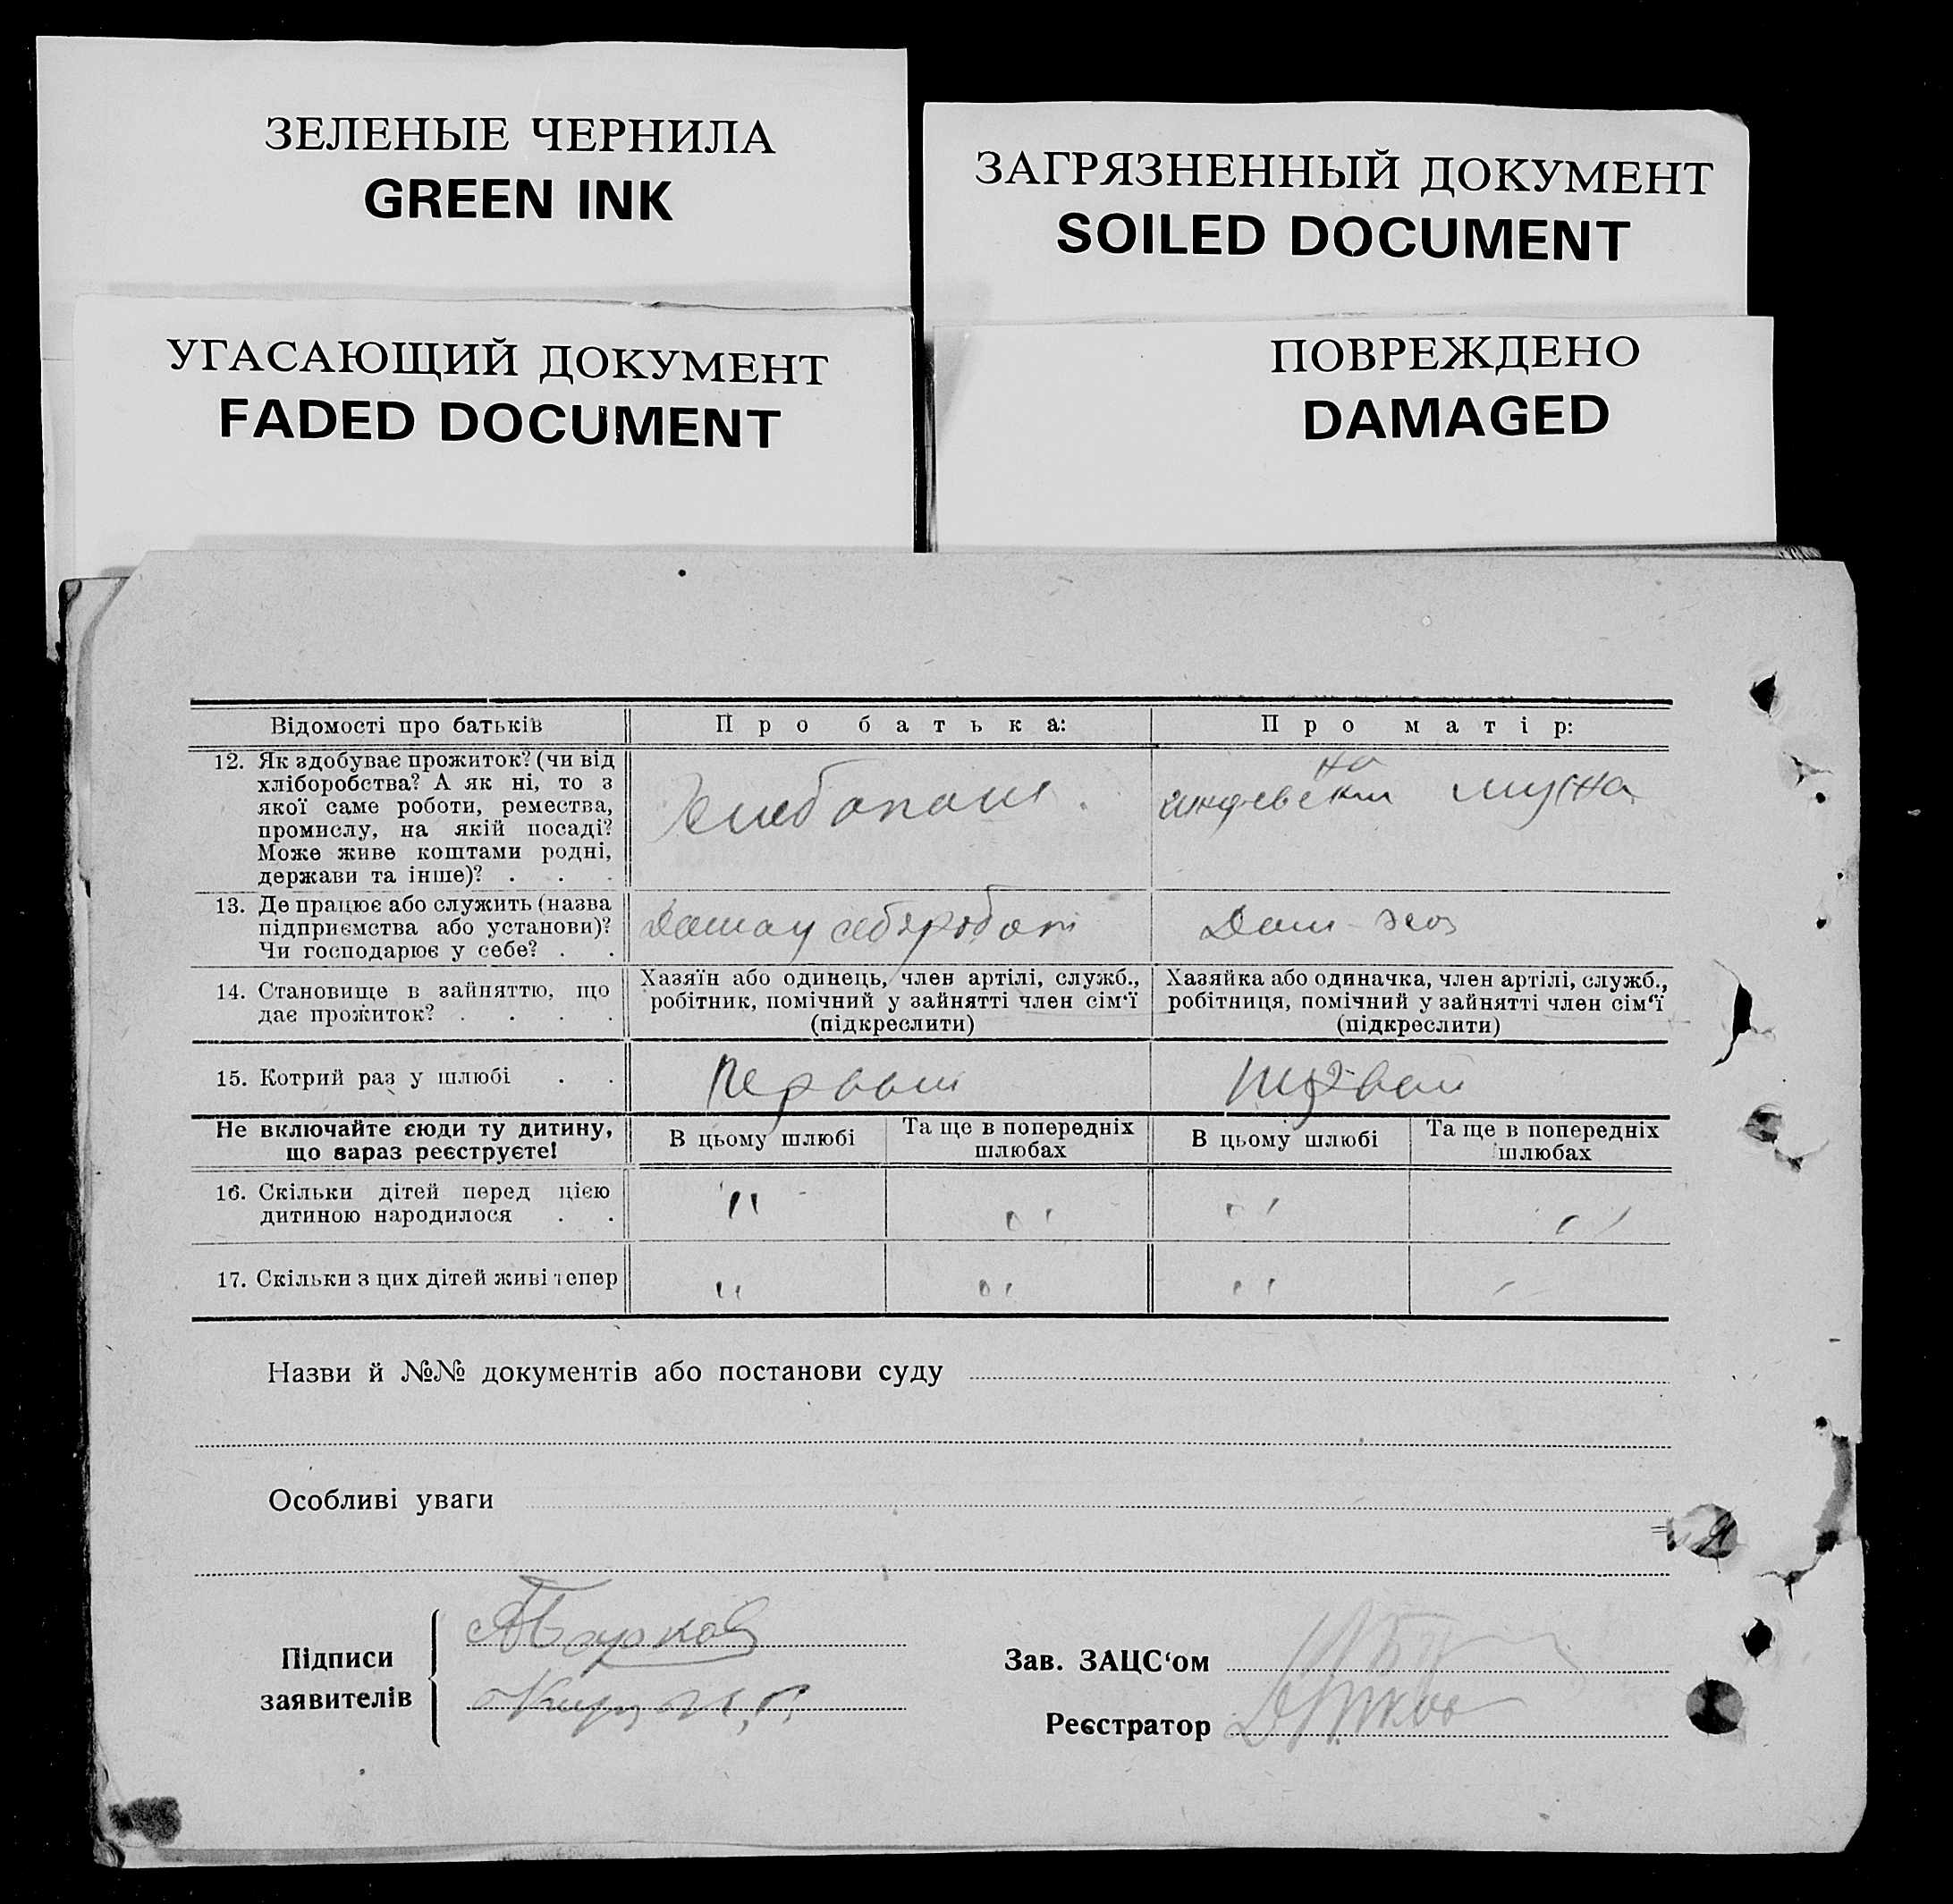 ЗЕЛЕНЫЕ ЧЕРНИЛА
GREEN INK
ЗАГРЯЗНЕННЫЙ ДОКУМЕНТ
SOILED DOCUMENT
УГАСАЮЩИЙ ДОКУМЕНТ
FADED DOCUMENT
ПОВРЕЖДЕНО
DAMAGED
Відомості про батьків
Про батька:
Про матір:
12. Як здобуває прожиток? (чи від
хліборобства? А як ні, то з
якої саме роботи, ремества,
промислу, на якій посаді?
Може живе коштами родні,
держави та інше)? . . .
на
мужа
13. Де працює або служить (назва
підприємства або установи)?
Чи господарює у себе? . .
Дом-хоз
14. Становище в зайняттю, що
дає прожиток? . . . .
Хазяїн або одинець, член артілі, служб.,
робітник, помічний у зайнятті член сім‘ї
(підкреслити)
Хазяйка або одиначка, член артілі, служб.,
робітниця, помічний у зайнятті член сім‘ї
(підкреслити)
15. Котрий раз у шлюбі . .
Первый
Первый
Не включайте сюди ту дитину,
що зараз реєструєте!
В цьому шлюбі
Та ще в попередніх
шлюбах
В цьому шлюбі
Та ще в попередніх
шлюбах
16. Скільки дітей перед цією
дитиною народилося . .
" " " "
17. Скільки з цих дітей живі тепер
" " "
Назви й №№ документів або постанови суду
Особливі уваги
Підписи
заявителів
Зав. ЗАЦС‘ом
Реєстратор